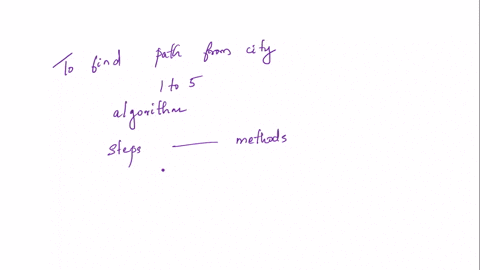 To find path from city
1 to 5
algorithm
steps — methods